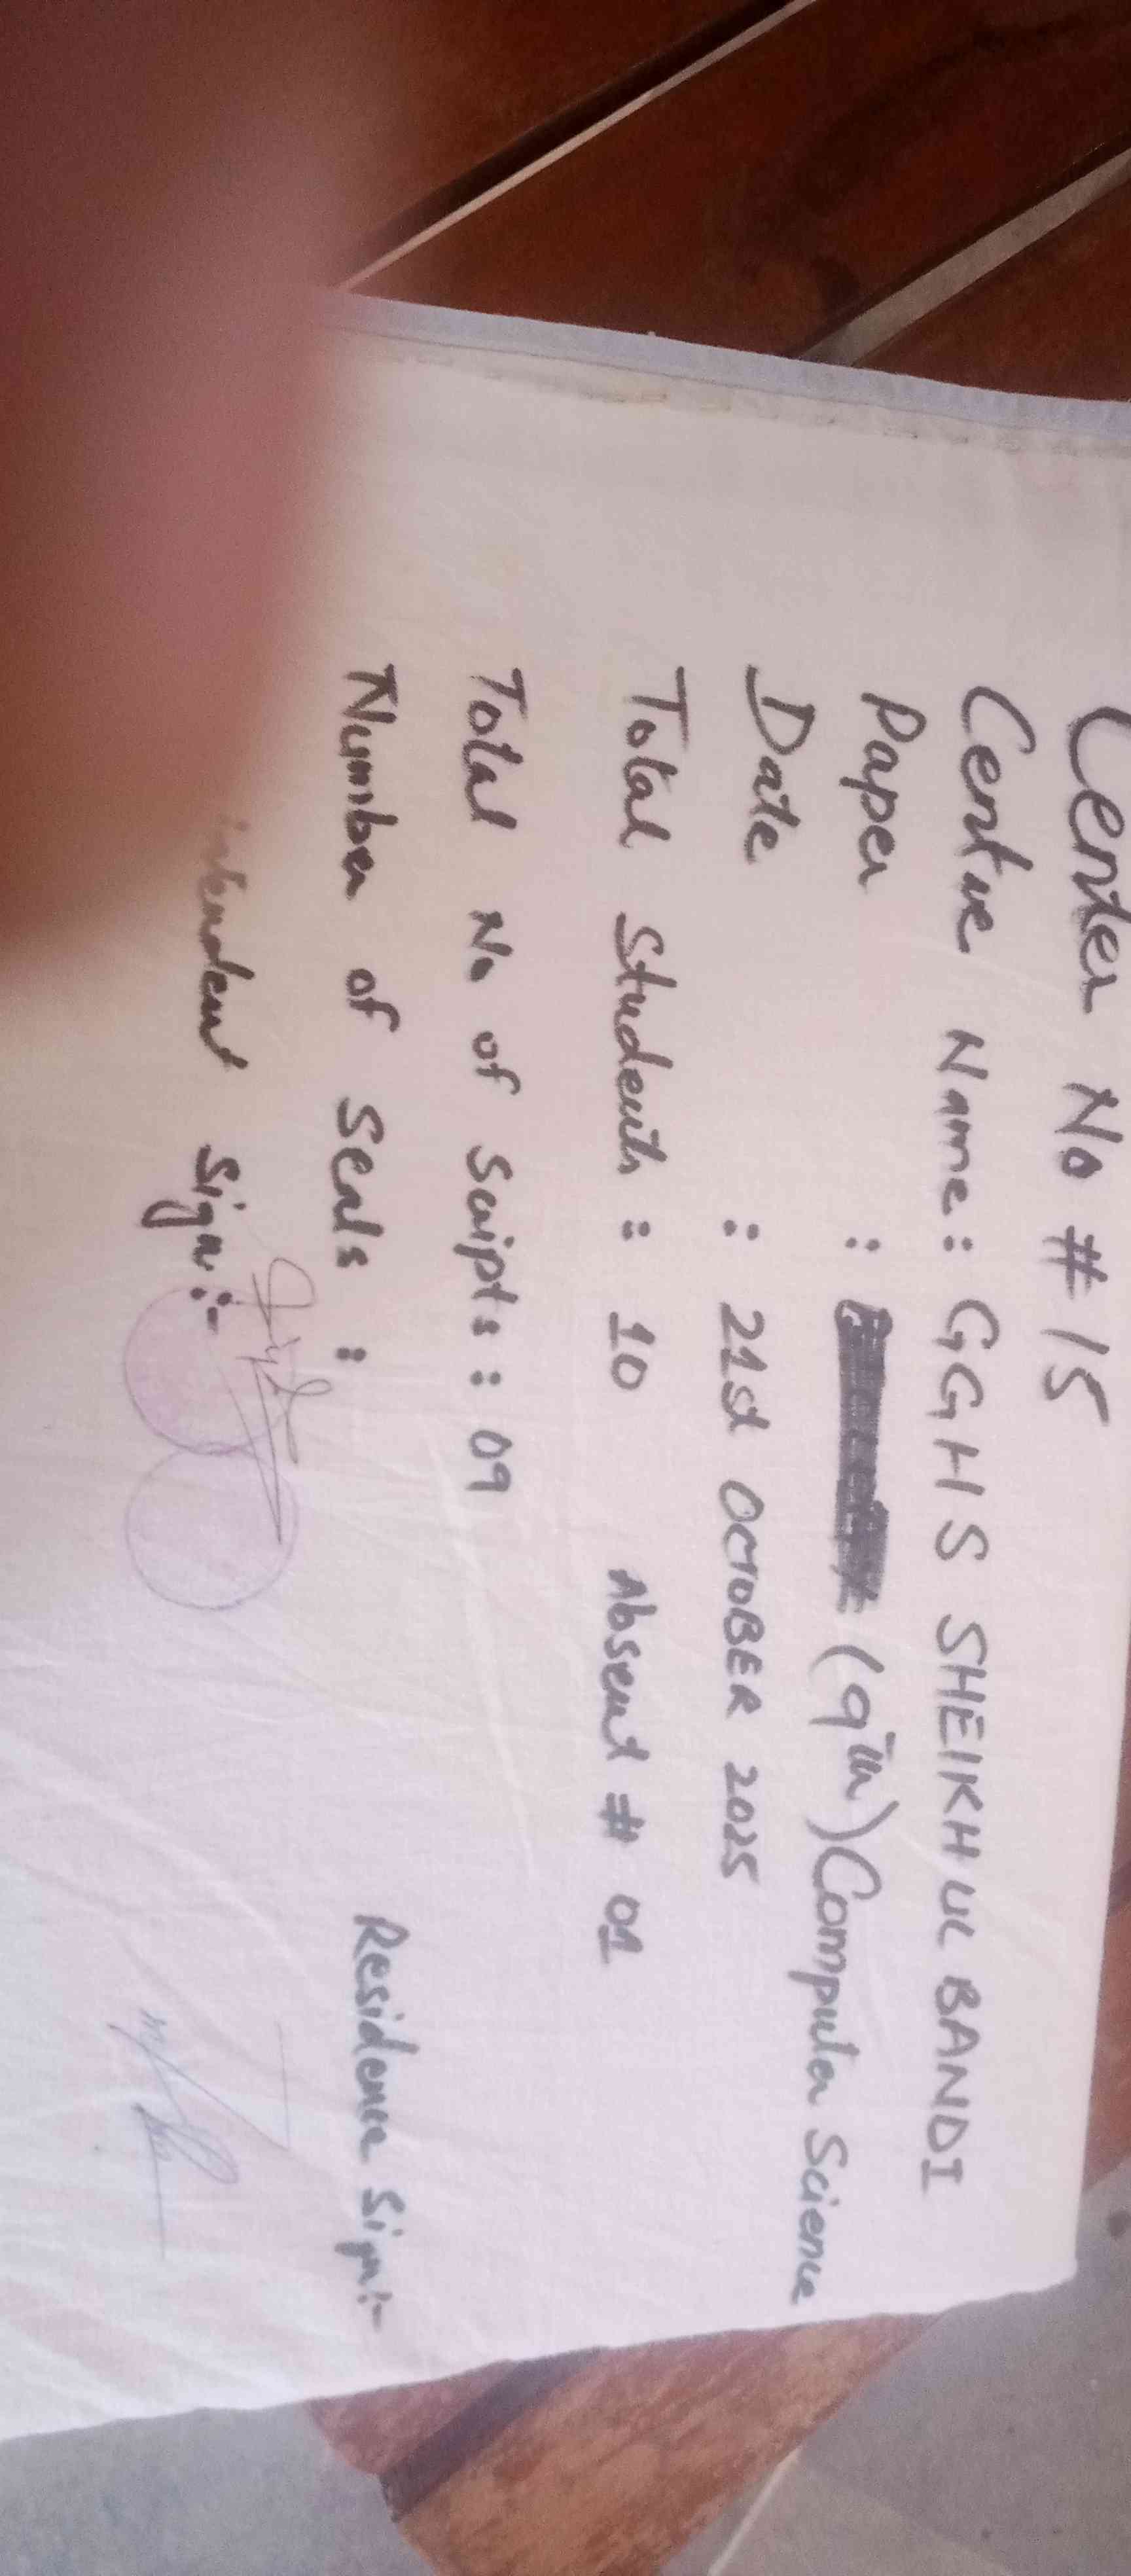 Center No # 15
Centre Name : GGHS SHEIKHUL BANDI
Paper : (9th) Computer Science
Date : 21st OCTOBER 2025
Total Students : 10 Absent # 01
Total No of Scripts : 09
Number of Seals :
Residence Sign:-
intendent Sign:-